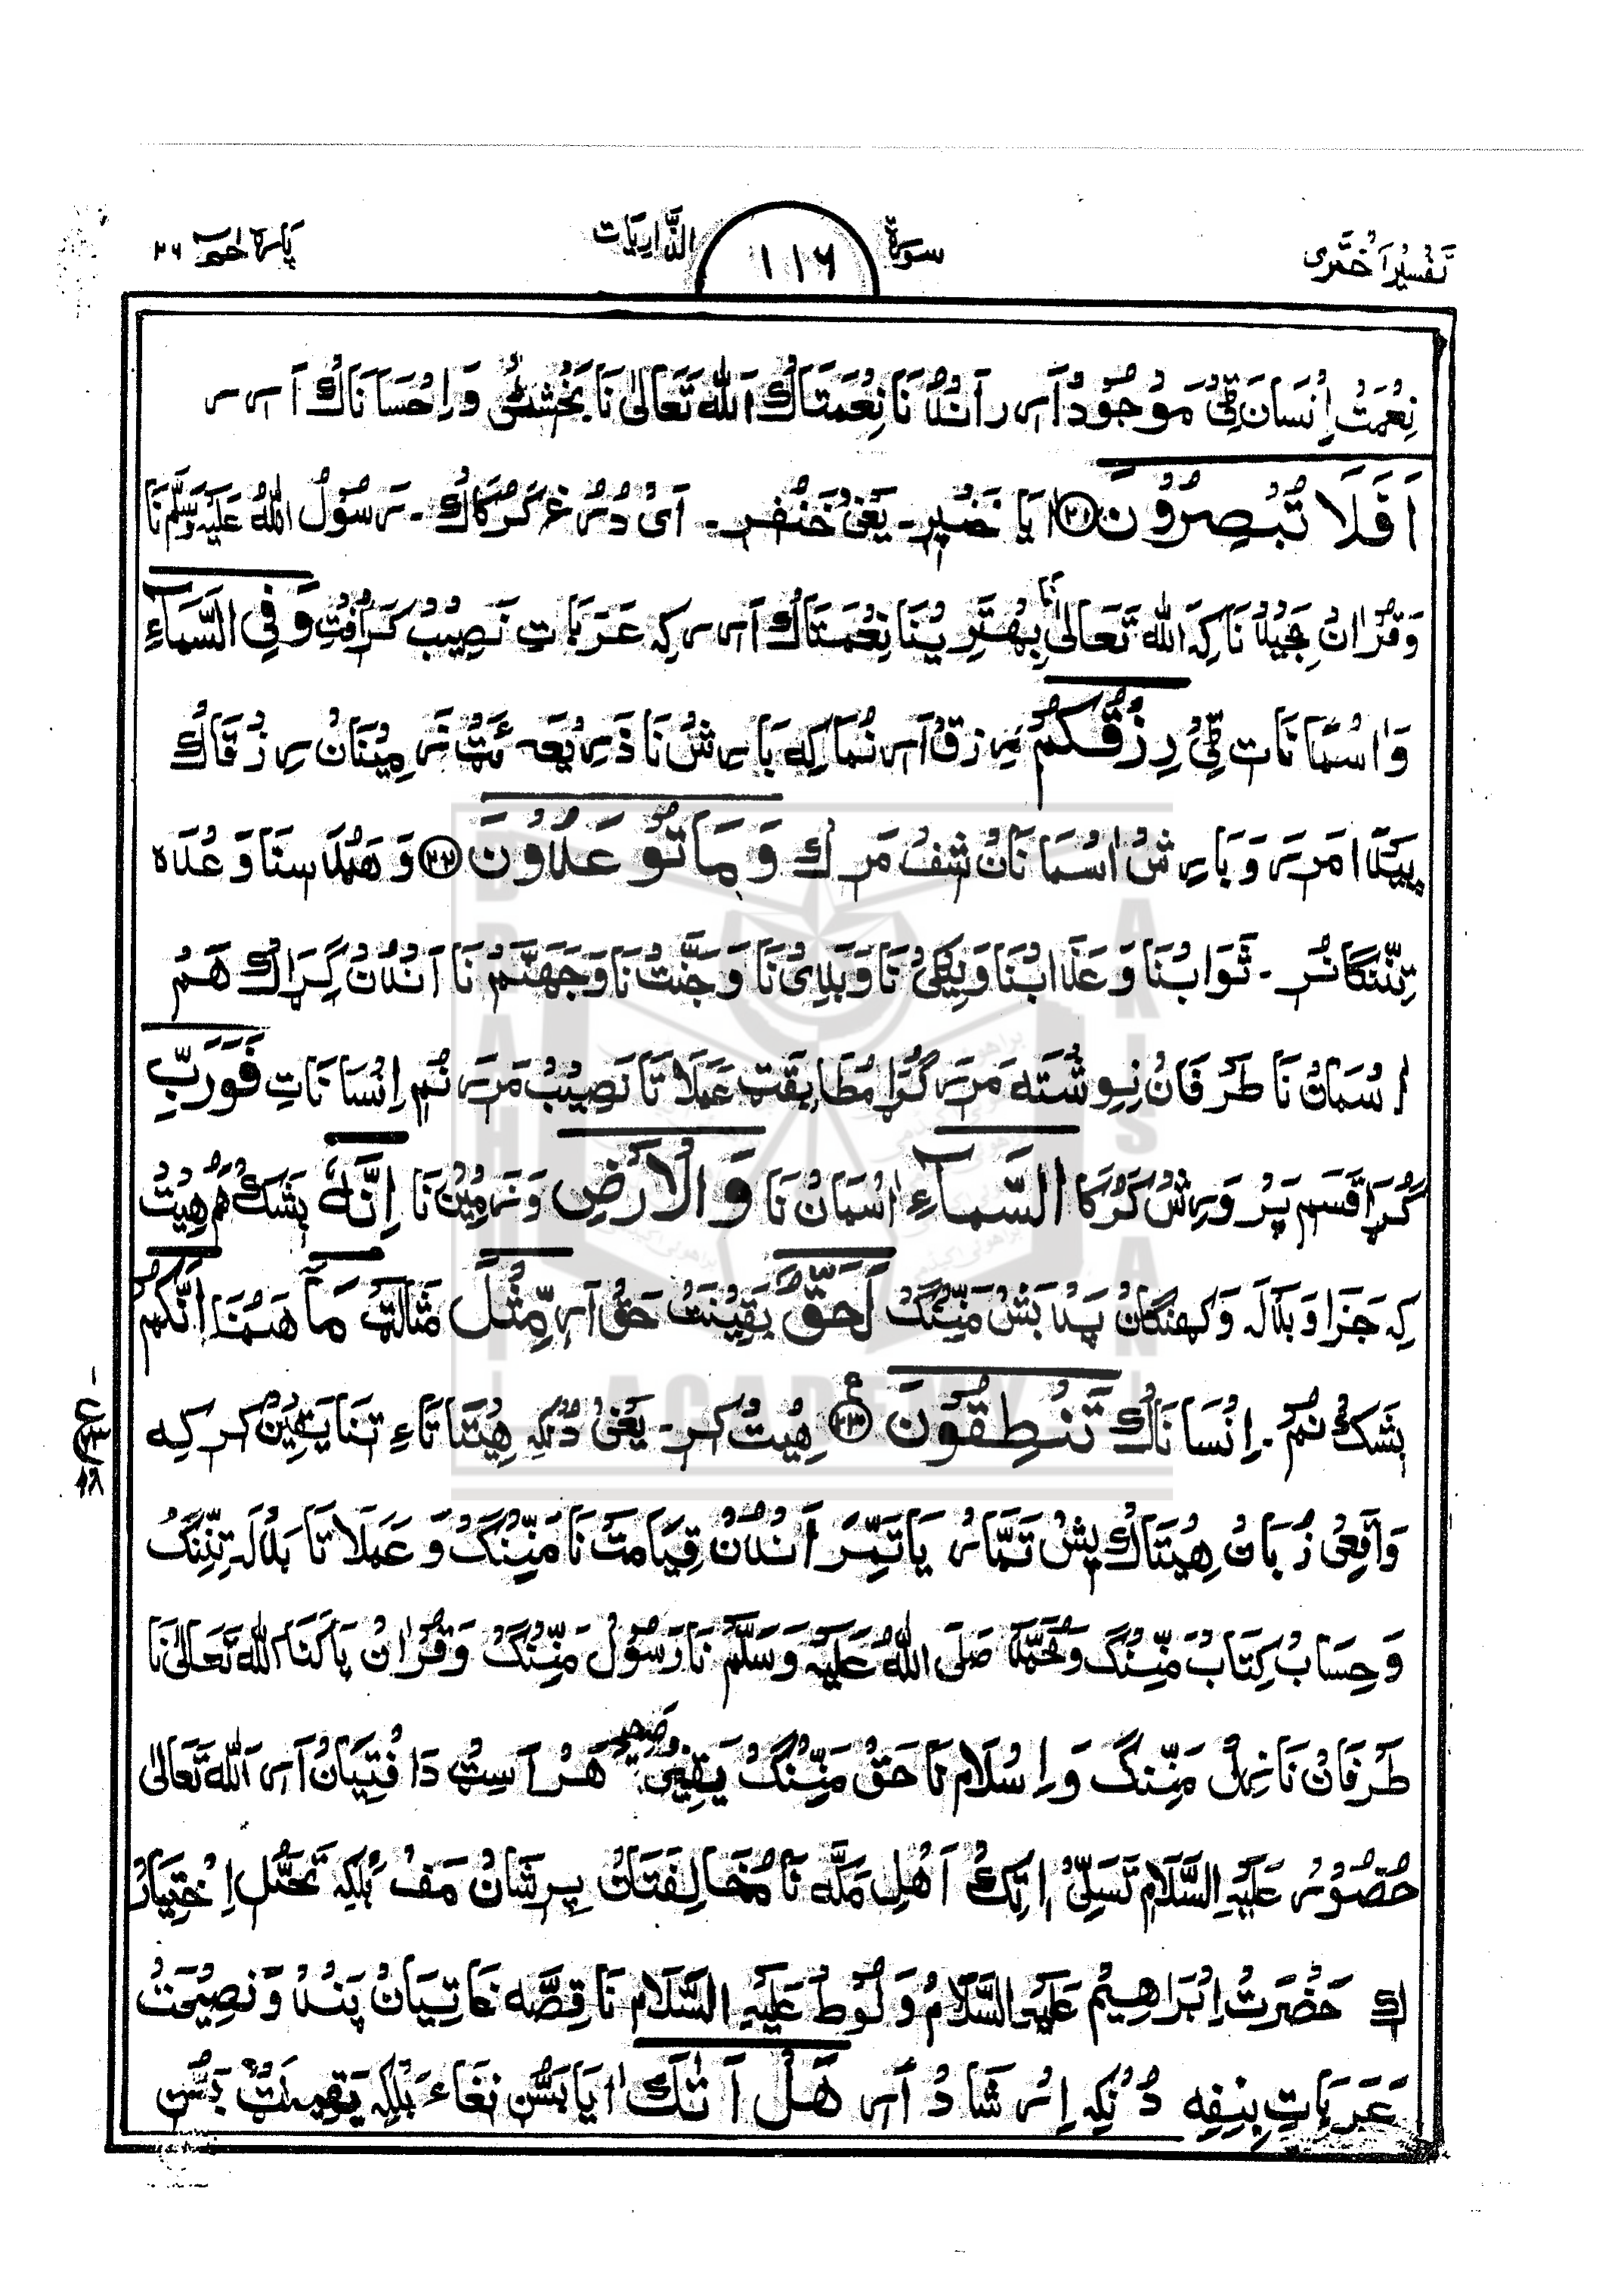 تَفسِیرِ اَختَرِی سورۃ ۱۱۶ الذّٰاریات پارہ حٰمٓ ۲۶
نِعْمَتْ اِنْسَان ٹِی مَوْجُوْد اَرِ دَانْدُنْ نَا نِعْمَتَاکْ اَللّٰہ تَعَالٰی نَا بَخْشِشْ وَ اِحْسَانَاکْ اَرِر
اَفَلَا تُبْصِرُوْنَ ۲۱ اَیَا خَنْپِر۔ یَعْنِیْ خَنْفِر۔ اَیْ دُرُغْ کَرُکَاکْ۔ رَسُوْلْ اللّٰہُ عَلَیْہِ وَسَلَّمْ نَا
وَ قُرْاٰنْ مَجِیْدْ نَا کِہ اَللّٰہ تَعَالٰی نَا بِھْتَرِیْنَا نِعْمَتَاکْ اَرِر کِہ عَرَبَاتِ نَصِیْبْ کَرَافِتْ وَفِی السَّمَآءِ
وَ اٰسْمَانَاتِ ٹِیْ رِزْقُکُمْ رِزْقْ اَرِ نُمَا کِہ بَارِشْ نَا ذَرِیْعَہ ئَٹْ زَمِیْنَانْ رِزْقَاکْ
پَیْدَا مَرِرَ وَ بَارِشْ اٰسْمَانَانْ شِفْ مَرِکْ وَمَا تُوْعَدُوْنَ ۲۲ وَ ھَمْدَاسِنَا وَعْدَہ
تِنِّنْگَانُر۔ ثَوَابْنَا وَ عَذَابْنَا وَ نِیْکِیْ نَا وَ بَدِیْ نَا وَ جَنَّتْ نَا وَ جَھَنَّمْ نَا اَنْدُنْ گِرَاکْ ھَمْ
اٰسْمَانْ نَا طَرْفَانْ نِوِشْتَہ مَرِرَ گُڑَا مُطَابِقَتِ عَمَلَاتَا نَصِیْبْ مَرِرَ نُمْ اِنْسَانَاتِ فَوَرَبِّ
گُڑَا قَسَمْ پَرْوَرِشْ کَرُکَا السَّمَآءِ اٰسْمَانْ نَا وَالْاَرْضِ وَ زَمِیْنْ نَا اِنَّہٗ بَشَکْ ھُمْ ھِیْتْ
کِہ جَزَا وَ بَدْلَہ وَ کَھِنْگَانْ پَدْ بَشْ مَنِّنْگ لَحَقٌّ یَقِیْنَٹْ حَقْ اَرِ مِّثْلَ مَثَالَٹْ مَآ ھَمْنَا اَنَّکُمْ
بَشَکْ نُمْ۔ اِنْسَانَاکْ تَنْطِقُوْنَ ۲۳ ھِیْتْ کَرِ۔ یَعْنِیْ دُنْکِہ ھِیْتَاتَاءِ تِنَا یَقِیْنْ کَرِ کِہ
وَاقِعِیْ زُبَانْ ھِیْتَاکْ پِشْ تَمَّارُ یَا تَمِّرَ اَنْدُنْ قِیَامَتْ نَا مَنِّنْگْ وَ عَمَلَاتَا بَدْلَہ تِنِّنْگْ
وَ حِسَابْ کِتَابْ مَنِّنْگ وَ مُحَمَّدْ صَلَی اللّٰہُ عَلَیْہِ وَسَلَّمْ نَا رَسُوْلْ مَنِّنْگْ وَ قُرْاٰنْ پَاکْنَا اللّٰہ تَعَالٰی نَا
طَرْفَانْ نَازِلْ مَنِّنْگ وَ اِسْلَامْ نَا حَقْ مَنِّنْگْ یَقِیْنِیْ صَحِیْح ھَرْ اَسِٹْ دَافْتِیَانْ اَرِ اَللّٰہ تَعَالٰی
حُضُوْرْ عَلَیْہِ السَّلَامْ تَسَلِّیْ اِتِکْ اَھْلِ مَکَّہ نَا مُخَالِفَتَانْ پِرِشَانْ مَفْ بَلْکِہ تَحَمُّلْ اِخْتِیَارْ
کِکْ حَضْرَتْ اِبْرَاھِیْمْ عَلَیْہِ السَّلَامْ وَ لُوْطْ عَلَیْہِ السَّلَامْ نَا قِصَّہ غَاتِیَانْ پَنْدْ وَ نَصِیْحَتْ
عَرَبَاتِ بِنِفِہ دُنْکِہ اِرْشَادْ اَرِ ھَلْ اَتٰکَ اٰیَا بَسُّنْ نِغَاءَ بَلْکِہ یَقِیْنَٹْ بَسُّنْ